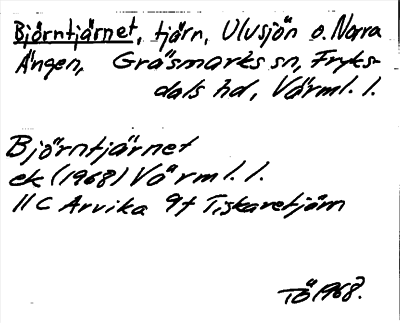 Björntjärnet, tjärn, Ulvsjön o. Norra
Ängen, Gräsmarks sn, Fryks-
dals hd, Värml. l.
Björntjärnet
ek (1968) Värml. l.
11 C Arvika 9f Tiskaretjärn
TÖ 1968.